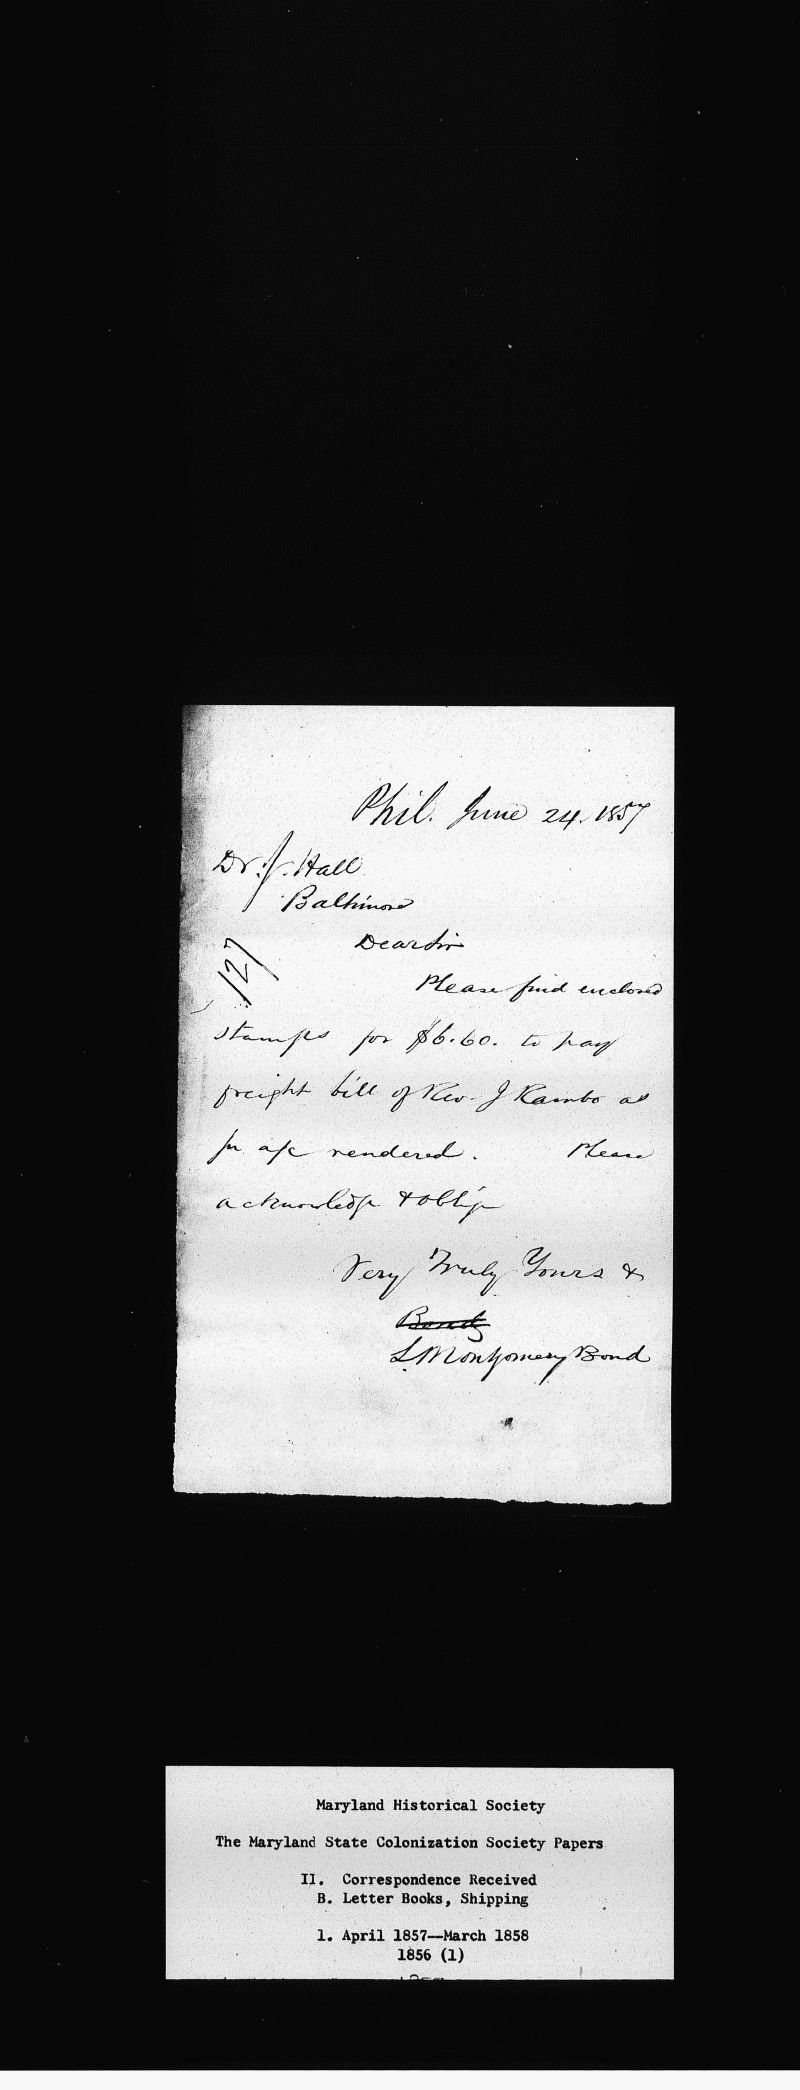 Phil. June 24. 1857
Dr. J. Hall
Baltimore
Dear Sir
127
Please find enclosed
stamps for $6.60. to pay
freight bill of Rev. J Rambo as
pr a/c rendered. Please
acknowledge & oblige
Very Truly Yours &
L. Montgomery Bond
Maryland Historical Society
The Maryland State Colonization Society Papers
II. Correspondence Received
B. Letter Books, Shipping
1. April 1857--March 1858
1856 (1)